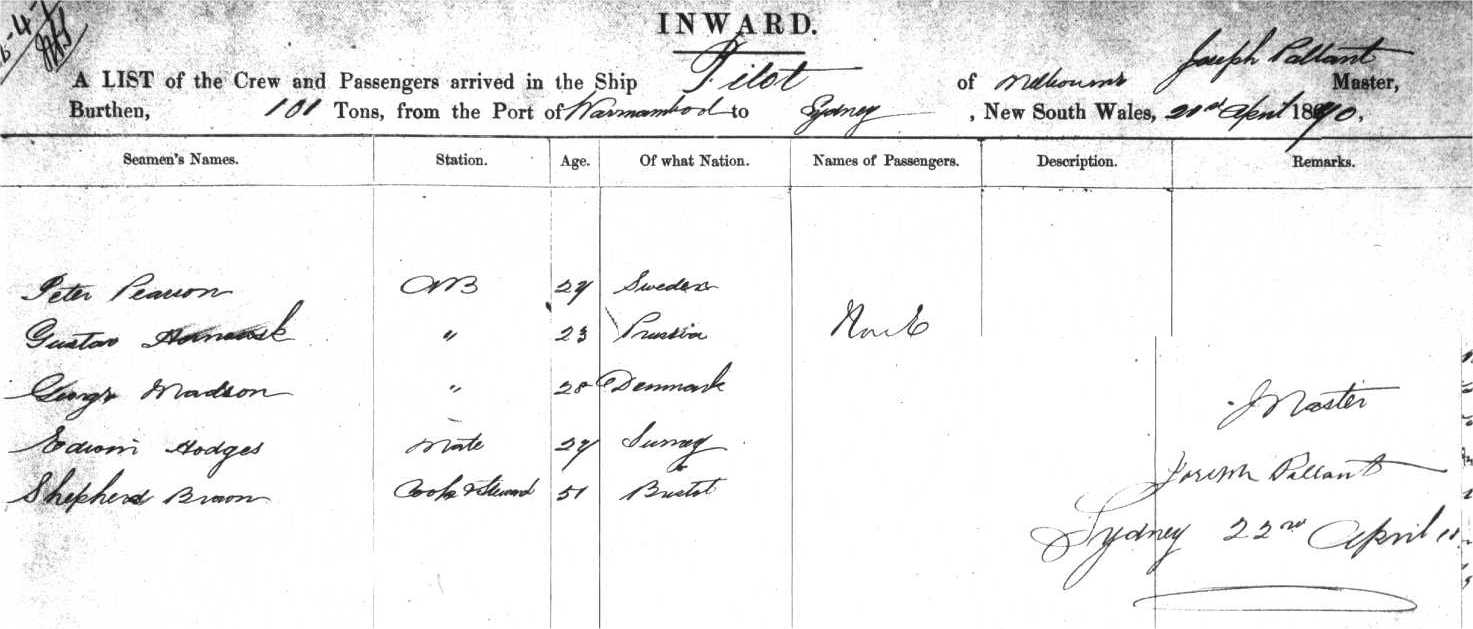 INWARD.
Joseph Pallant
A LIST of the Crew and Passengers arrived in the Ship Pilot of Melbourne Master,
Burthen, 101 Tons, from the Port of Warnambool to Sydney, New South Wales, 21st April 1890,
Seamen's Names. Station. Age. Of what Nation. Names of Passengers. Description. Remarks.
Peter Pearson AB 27 Sweden
Gustav " 23 Prussia None
George Madson " 28 Denmark
Master
Edwin Hodges Mate 27 Surrey
Joseph Pallant
Shepherd Brown Cook & Steward 51 Bristol
Sydney 22nd April